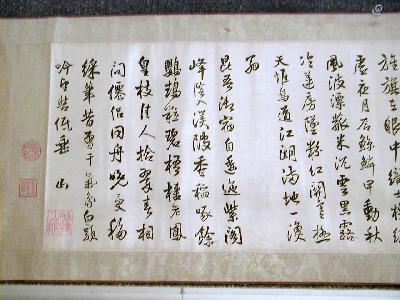 旌旗在眼中織
虛夜月石鯨鱗甲動秋
風波漂菰米沉雲黑露
冷蓮房墜粉紅關塞極
天惟鳥道江湖滿地一漁
翁
昆吾御宿自逶迤紫閣
峰陰入渼陂香稻啄餘
鸚鵡粒碧梧棲老鳳
皇枝佳人拾翠春相
問僊侶同舟晚更移
綵筆昔曾干氣象白頭
吟望苦低垂